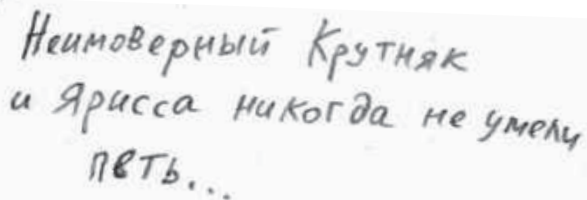 Неимоверный Крутняк
и Ярисса никогда не умели
петь...